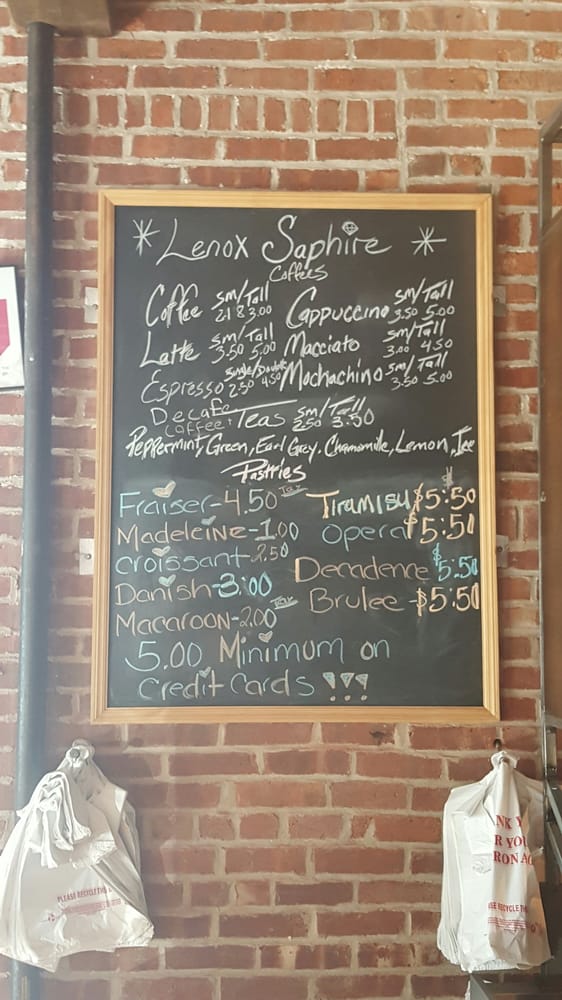 * Lenox Saphire *
Coffees
Coffee sm/Tall 2.18 3.00
Cappuccino sm/Tall 3.50 5.00
Latte sm/Tall 3.50 5.00
Macciato sm/Tall 3.00 4.50
Espresso single/Double 2.50 4.50
Mochachino sm/Tall 3.50 5.00
Decafe Coffee + Teas sm/Tall 2.50 3.50
Peppermint, Green, Earl Grey. Chamomile, Lemon, Ice
Pastries
Fraiser - 4.50 Tax
Tiramisu $5:50
Madeleine - 1.00
Opera $5:50
Croissant 2.50
Decadence $5:50
Danish - 3:00
Brulee - $5:50
Macaroon - 2.00 Tax
5.00 Minimum on
credit cards !!!
PLEASE RECYCLE THIS
NK Y
R YOU
RONAG
SE RECYCLE THIS